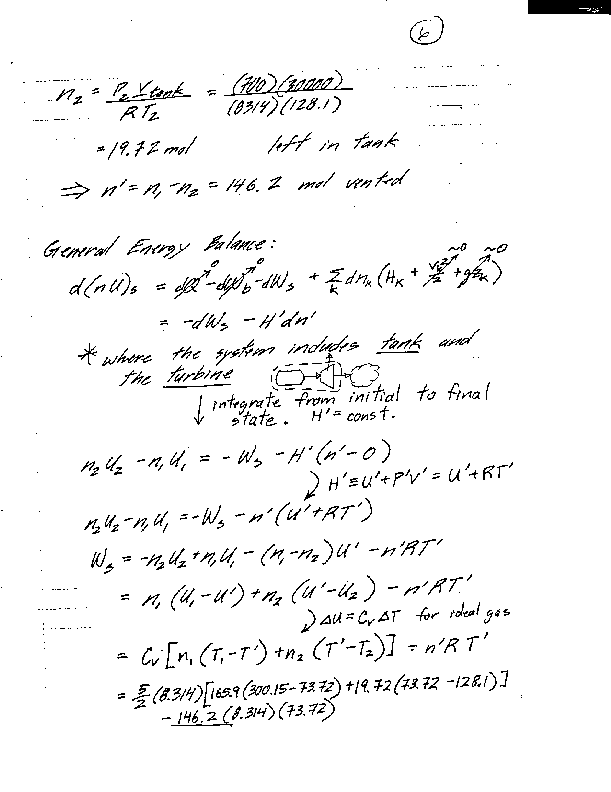 6
n₂ = P₂ V_tank / R T₂ = (700)(30000) / (8314)(128.1)
= 19.72 mol left in tank
⇒ n' = n₁ - n₂ = 146.2 mol vented
General Energy Balance:
d(nU)s = dQ⁰ - dW_b⁰ - dWs + Σ_k dn_k (H_K + v²/2 ~0 + gz_k ~0)
= -dWs - H'dn'
* where the system includes tank and
the turbine
↓ integrate from initial to final
state. H' = const.
n₂U₂ - n₁U₁ = -Ws - H'(n' - 0)
H' ≡ U' + P'V' = U' + RT'
n₂U₂ - n₁U₁ = -Ws - n'(U' + RT')
Ws = -n₂U₂ + n₁U₁ - (n₁ - n₂)U' - n'RT'
= n₁(U₁ - U') + n₂(U' - U₂) - n'RT'
ΔU = CvΔT for ideal gas
= Cv[n₁(T₁ - T') + n₂(T' - T₂)] = n'RT'
= 5/2 (8.314)[165.9(300.15 - 73.72) + 19.72(73.72 - 128.1)]
- 146.2(8.314)(73.72)